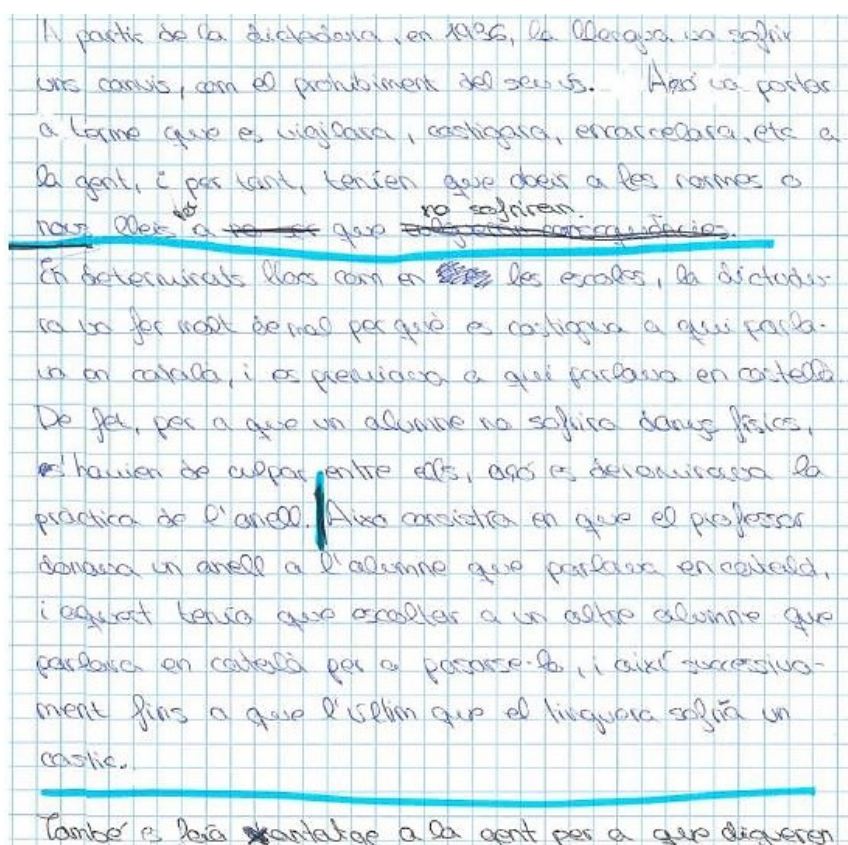 A partir de la dictadura, en 1936, la llengua va sofrir
uns canvis, com el prohibiment del seu ús. Açò va portar
a terme que es vigilara, castigara, encarcelara, etc a
la gent, i per tant, tenien que obeir a les normes o
nous lleis per a que no sofriren.
En determinats llocs com en les escoles, la dictadu-
ra va fer molt de mal perquè es castigava a qui parla-
va en català, i es premiava a qui parlava en castellà.
De fet, per a que un alumne no sofrira danys físics,
s'havien de culpar entre ells, açò es denominava la
pràctica de l'anell. Aixo consistía en que el professor
donava un anell a l'alumne que parlava en català,
i aquest tenia que escoltar a un altre alumne que
parlara en català per a passar-se-lo, i així successiva-
ment fins a que l'últim que el tinguera sofría un
castic.
També es feia xantatge a la gent per a que digueren